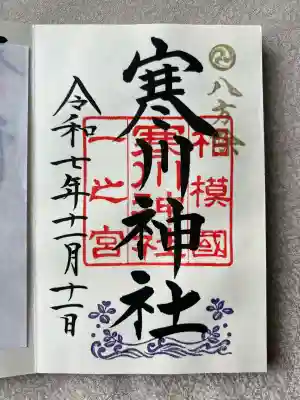 八方除
相模國
寒川神社
寒川神社
一之宮
令和七年十一月十一日